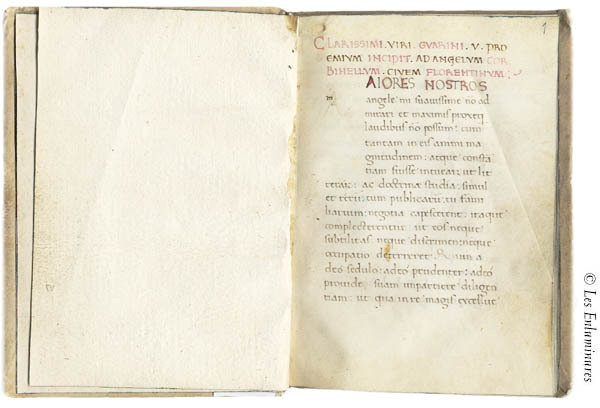 1
CLARISSIMI. VIRI. GVARINI. V. PRO
EMIVM INCIPIT. AD ANGELVM COR
BINELLVM. CIVEM FLORENTINVM:
AIORES NOSTROS
angele mi suauissime nō ad
mirari et maximis proseq
laudibus nō possum: cum
tantam in eis animi ma
gnitudinem: atque constā
tiam fuisse intuear: ut lit
terarū ac doctrinae studia: simul
et rerū: tum publicarū tū fami
liarum: negotia capescerent: itaque
complecterentur ut eos neque
subtilitas neque discrimen: neque
occupatio deterreret. Quin
adeo sedulo: adeo prudenter: adeo
prouide suam impartiere diligen
tiam: ut qua in re magis excelluit
© Les Enluminures